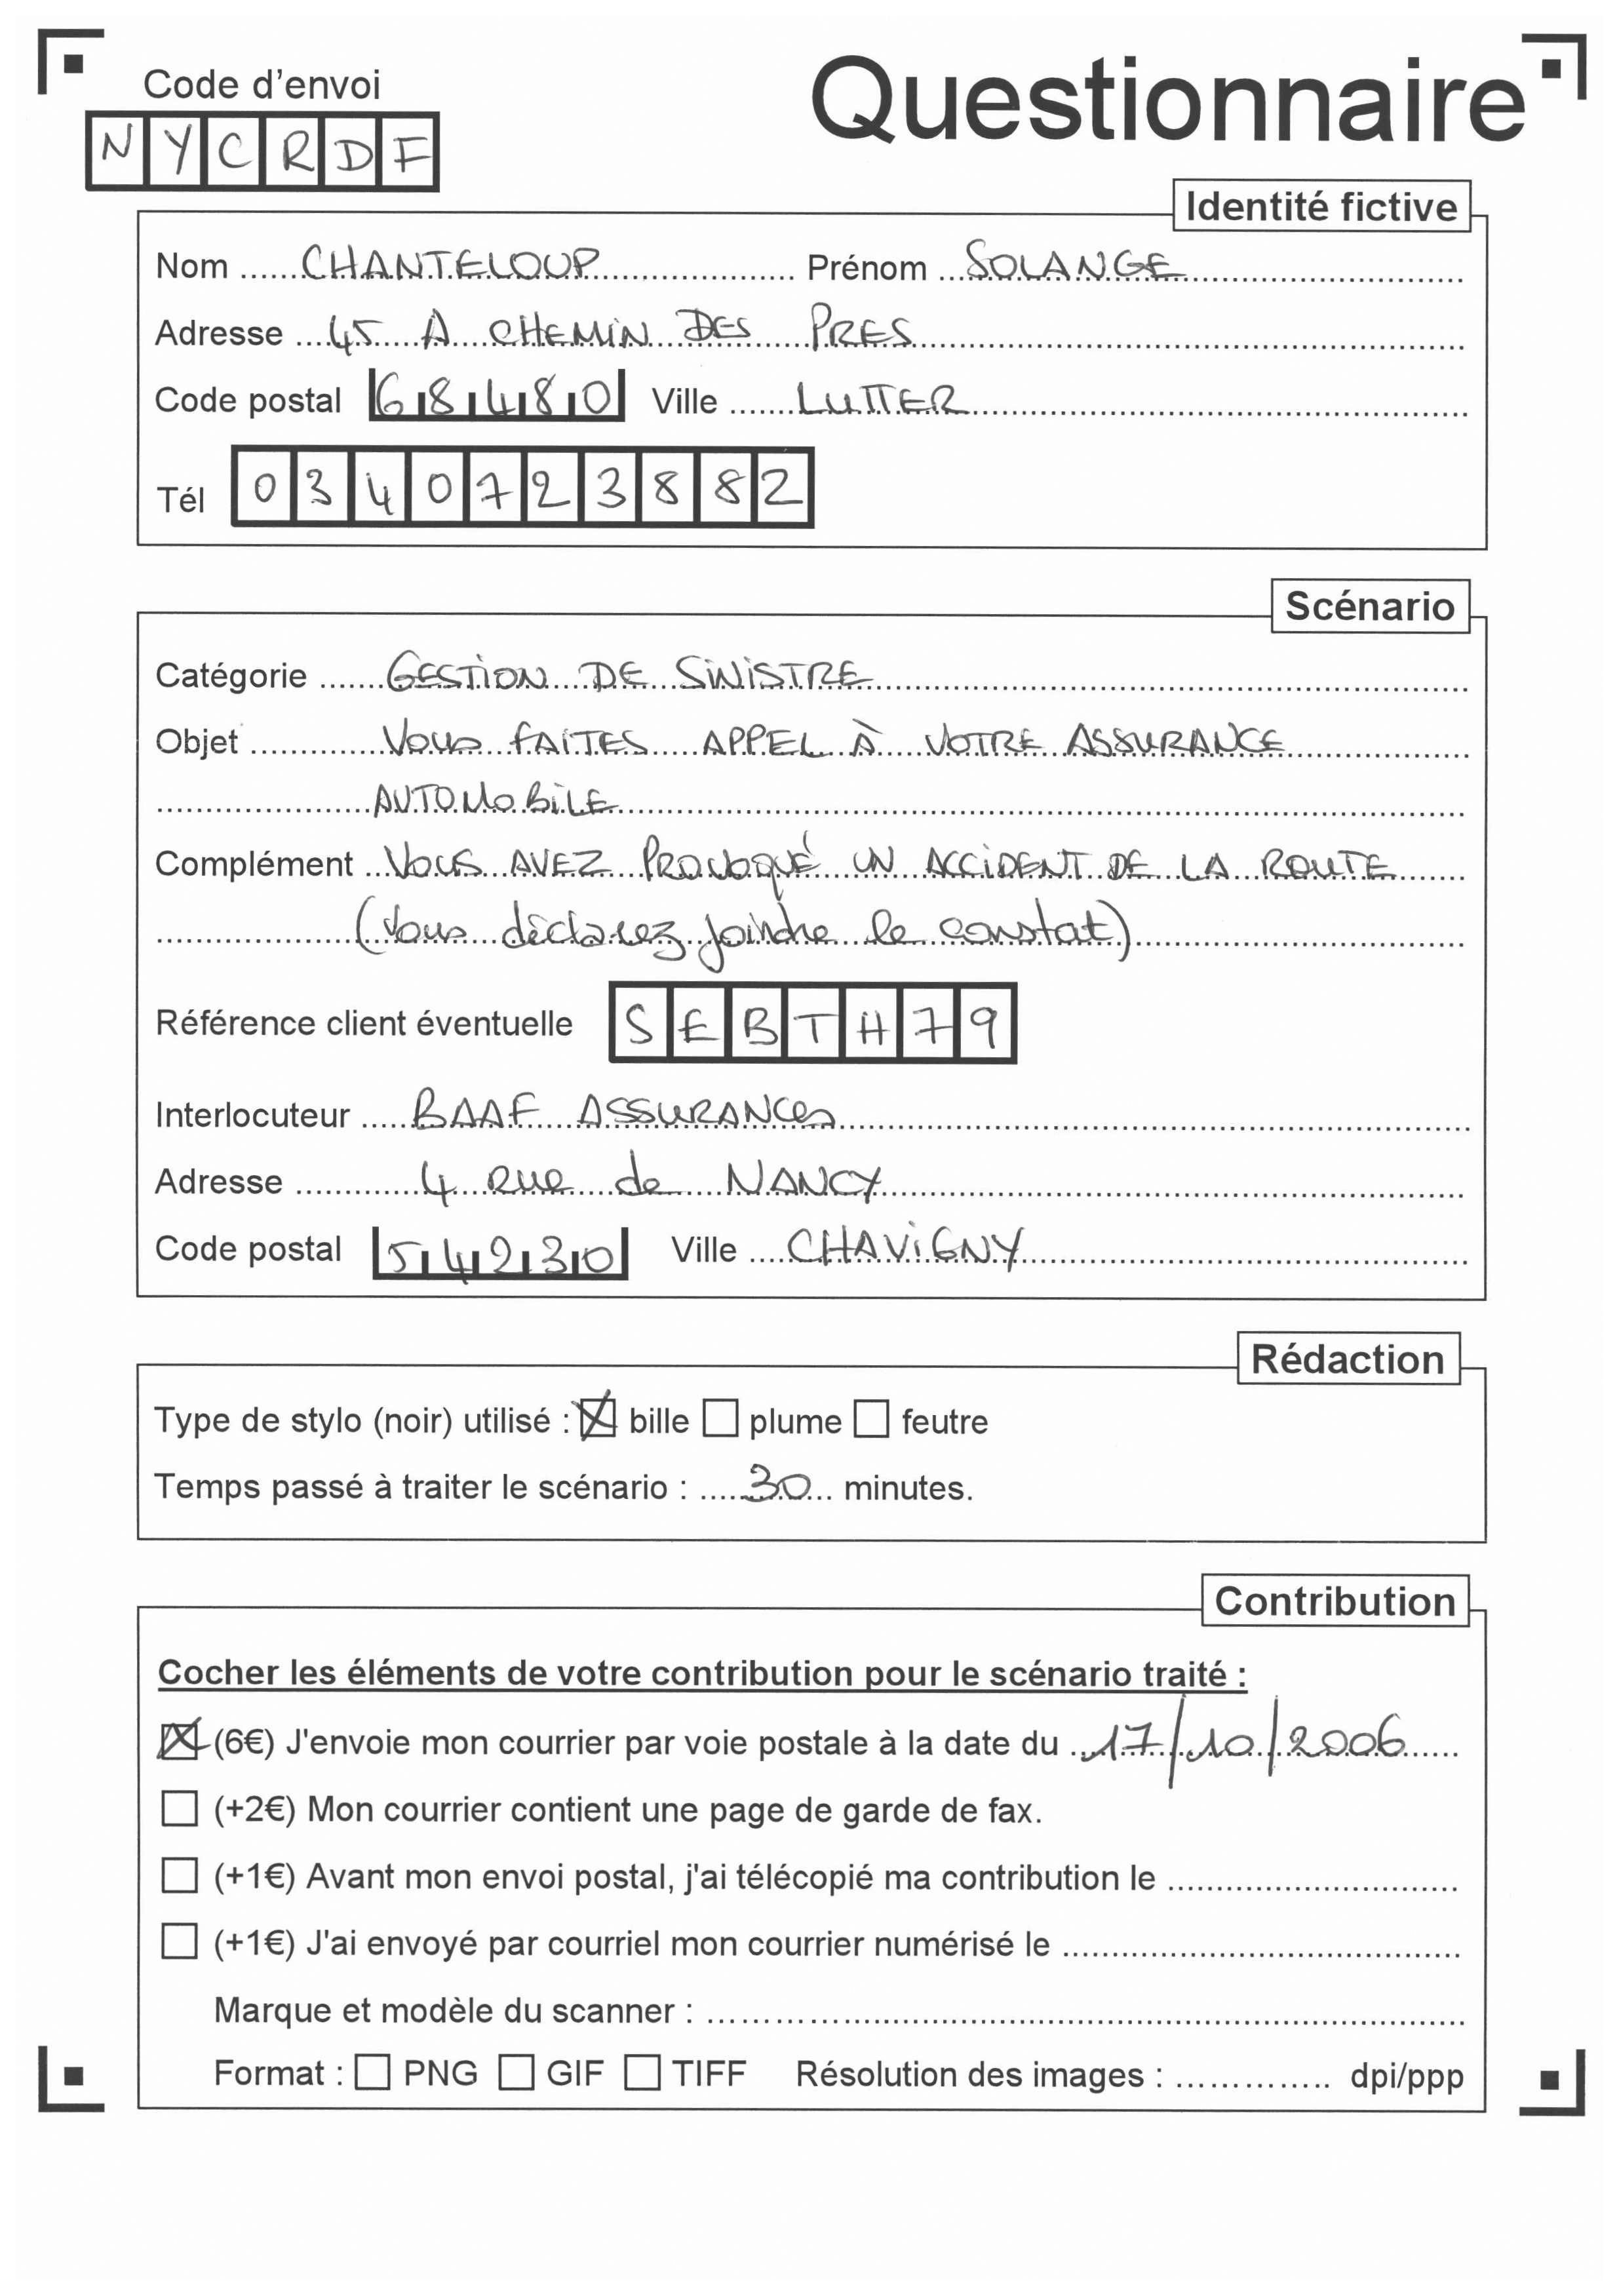 Code d'envoi
NYCRDF
Questionnaire
Identité fictive
Nom ...... CHANTELOUP ...... Prénom ... SOLANGE ......
Adresse .... 45 A CHEMIN DES PRES ......
Code postal 68480 Ville ...... LUTTER ......
Tél 0340723882
Scénario
Catégorie ...... GESTION DE SINISTRE ......
Objet ...... Vous FAITES APPEL À VOTRE ASSURANCE ......
...... AUTOMOBILE ......
Complément ... VOUS AVEZ PROVOQUÉ UN ACCIDENT DE LA ROUTE ......
...... (Vous déclarez joindre le constat) ......
Référence client éventuelle SEBTH79
Interlocuteur ..... BAAF ASSURANCES ......
Adresse ...... 4 RUE de NANCY ......
Code postal 54230 Ville .... CHAVIGNY ......
Rédaction
Type de stylo (noir) utilisé : ☒ bille ☐ plume ☐ feutre
Temps passé à traiter le scénario : ..... 30 ... minutes.
Contribution
Cocher les éléments de votre contribution pour le scénario traité :
☒ (6€) J'envoie mon courrier par voie postale à la date du .. 17/10/2006 ......
☐ (+2€) Mon courrier contient une page de garde de fax.
☐ (+1€) Avant mon envoi postal, j'ai télécopié ma contribution le ......
☐ (+1€) J'ai envoyé par courriel mon courrier numérisé le ......
Marque et modèle du scanner : ......
Format : ☐ PNG ☐ GIF ☐ TIFF Résolution des images : ...... dpi/ppp